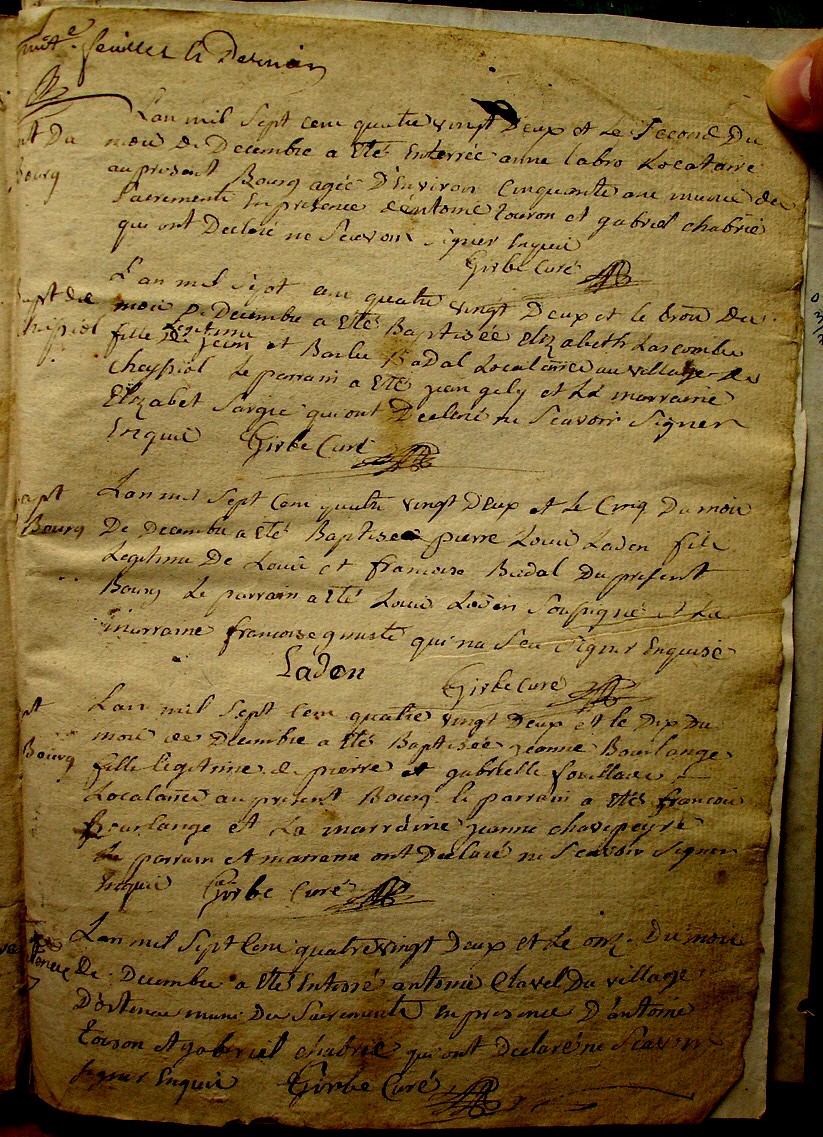 feuillet le Dernier
nt Du
Bourg
Lan mil Sept cens quatre vingt Deux et Le Second Du
mois de Decembre a Eté Enterrée anne labro Locataire
au present Bourg agée D'Environ Cinquante ans munie des
Sacrements En presence d'antoine et gabriel chabrié
qui ont Declaré ne Scavoir Signer Enquis
Girbe Curé
apt de
cheypiol
Lan mil Sept cens quatre vingt Deux et le trois Du
mois De Decembre a Eté Baptisée Elizabeth Lascombe
fille Legitime de jean et Barbe Badal Locataires au village de
Cheypiol Le parrain a Eté jean gely et La marraine
Elizabet Sargie qui ont Declaré ne Scavoir Signer
Enquis Girbe Curé
apt
Bourg
Lan mil Sept Cens quatre vingt Deux et Le Cinq Du mois
De Decembre a Eté Baptisé pierre Louis Ladon fils
Legitime De Louis et francoise Badal Du present
Bourg Le parrain a Eté Louis Ladon Soupigné et La
marraine francoise qui na Seu Signer Enquise
Ladon
Girbe Curé
pt
Bourg
Lan mil Sept Cens quatre vingt Deux et le Dix Du
mois de Decembre a Eté Baptisée jeanne Bourlange
fille legitime de pierre et gabrielle fouillade
Locataires au present Bourg le parrain a Eté francois
Bourlange et La marraine jeanne chavepeyre
Le parrain et marraine ont Declaré ne Scavoir Signer
Enquis Girbe Curé
Lan mil Sept Cens quatre vingt Deux et Le onze Du mois
De Decembre a Eté Enterré antoine Clavel Du village
muni Des Sacrements En presence D'antoine
et gabriel chabrié qui ont Declaré ne Scavoir
Signer Enquis Girbe Curé